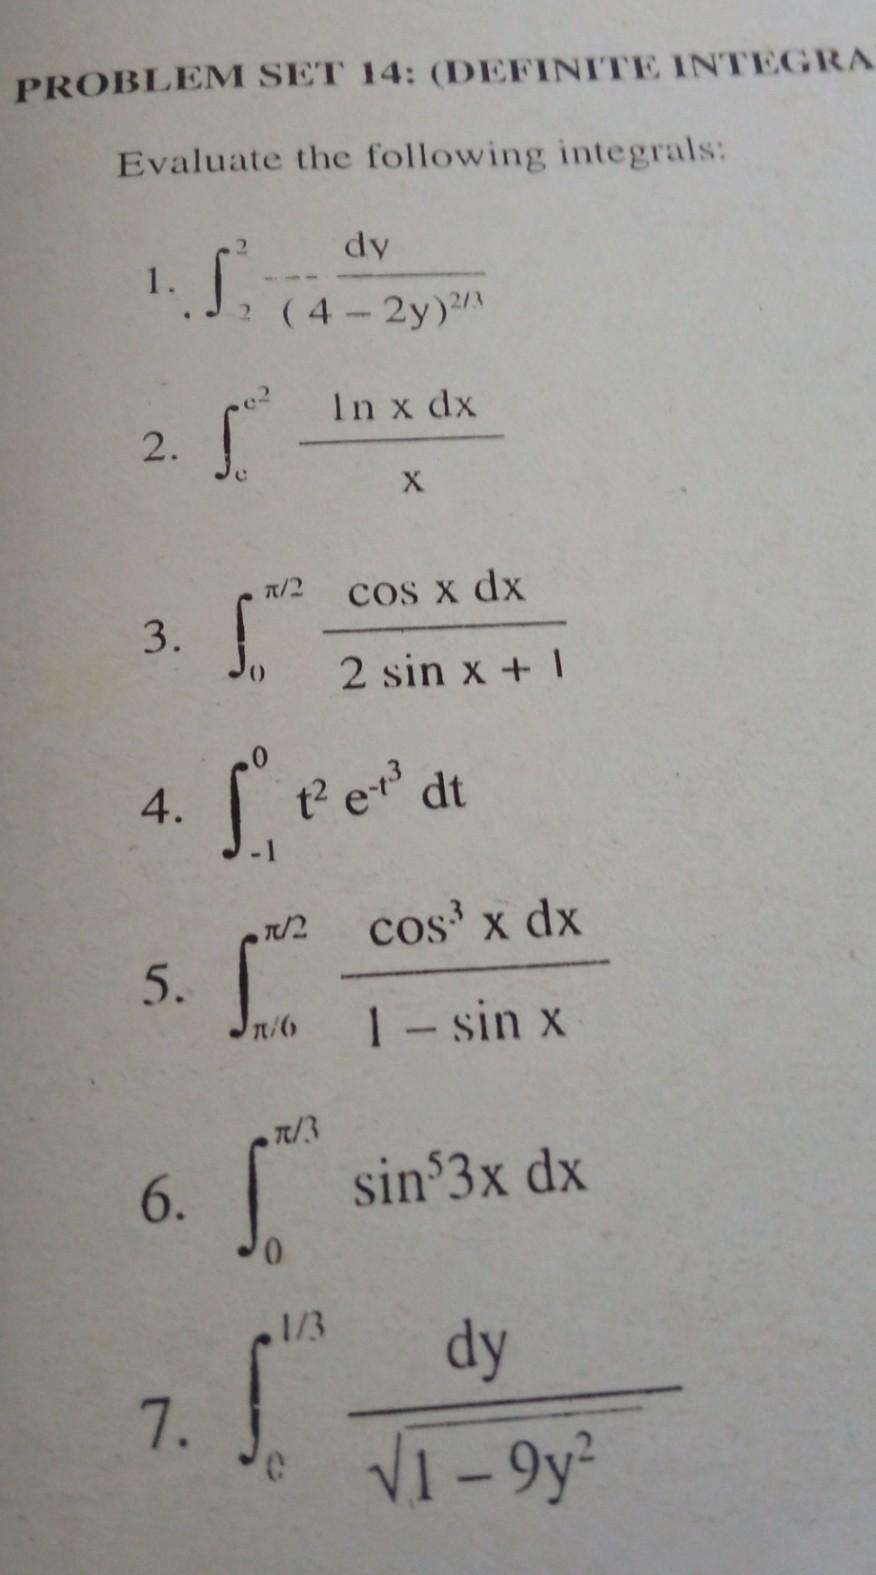 PROBLEM SET 14: (DEFINITE INTEGRA
Evaluate the following integrals:
1. ∫₂² dy / (4 – 2y)^2/3
2. ∫ₑ^e² ln x dx / x
3. ∫₀^π/2 cos x dx / 2 sin x + 1
4. ∫₋₁⁰ t² e^-t³ dt
5. ∫_π/6^π/2 cos³ x dx / 1 – sin x
6. ∫₀^π/3 sin⁵3x dx
7. ∫₀^1/3 dy / √1 – 9y²